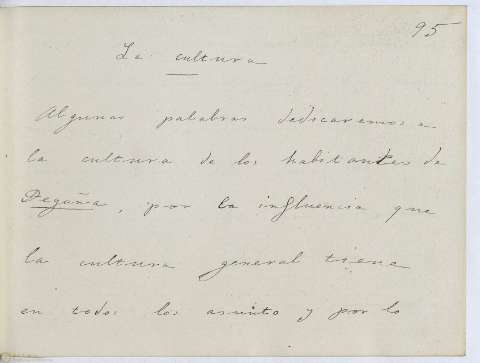 95
La cultura
Algunas palabras dedicaremos a
la cultura de los habitantes de
Pegúña, por la influencia que
la cultura general tiene
en todos los asunto y por lo